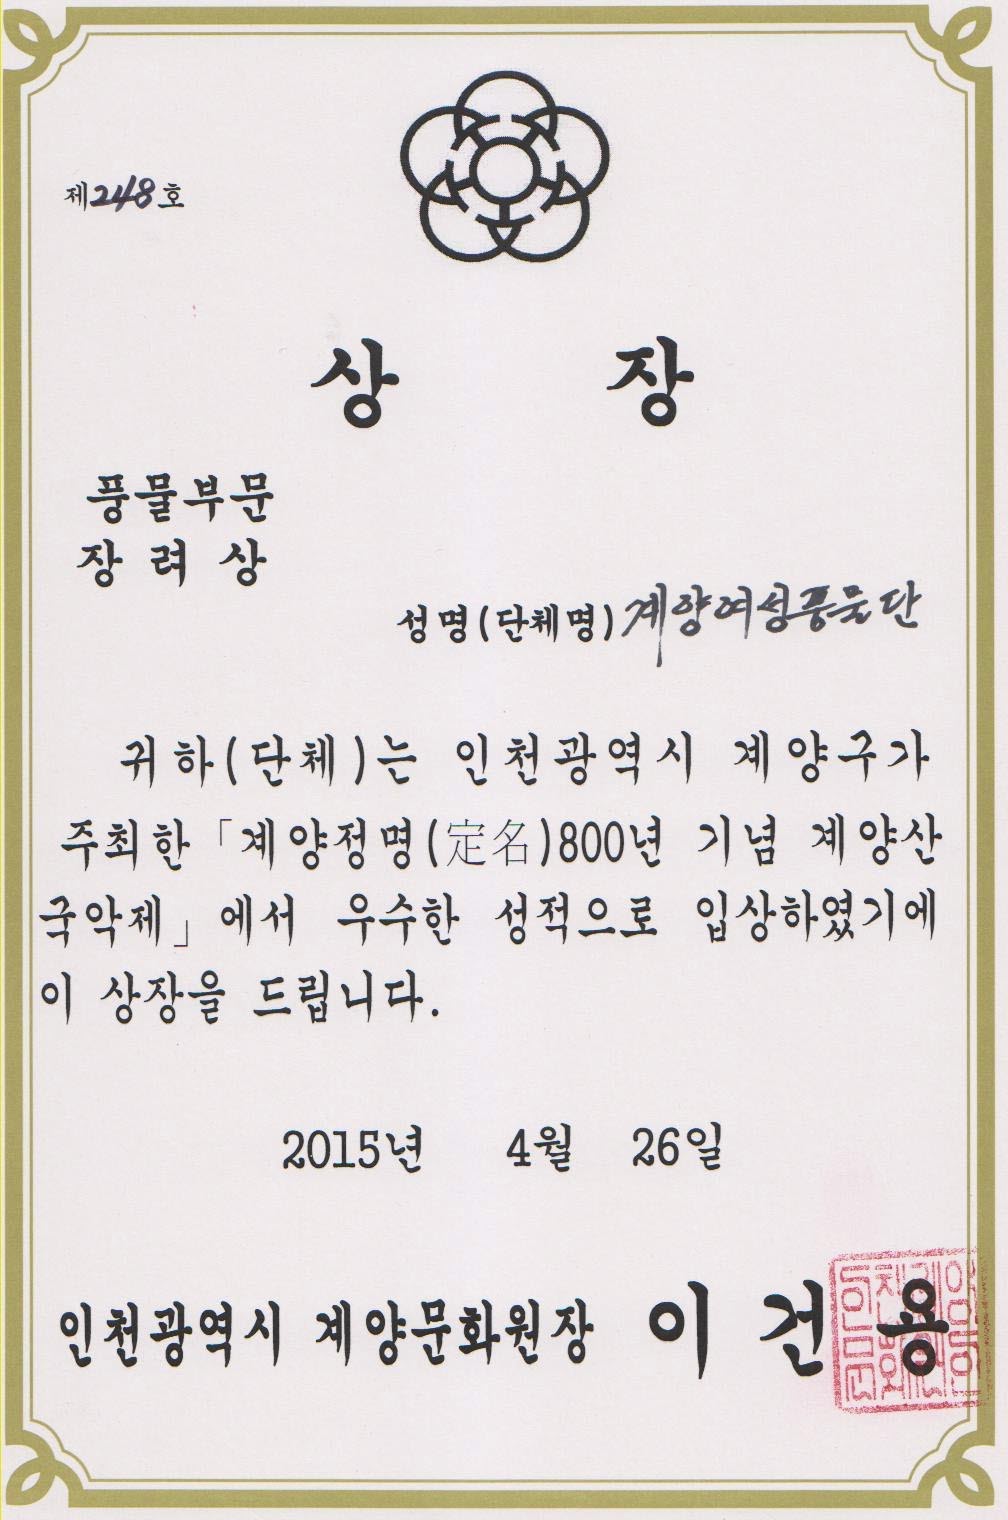 제248호
상 장
풍물부문
장 려 상
성명(단체명) 계양여성풍물단
귀하(단체)는 인천광역시 계양구가
주최한 「계양정명(定名)800년 기념 계양산
국악제」에서 우수한 성적으로 입상하였기에
이 상장을 드립니다.
2015년 4월 26일
인천광역시 계양문화원장 이 건 용